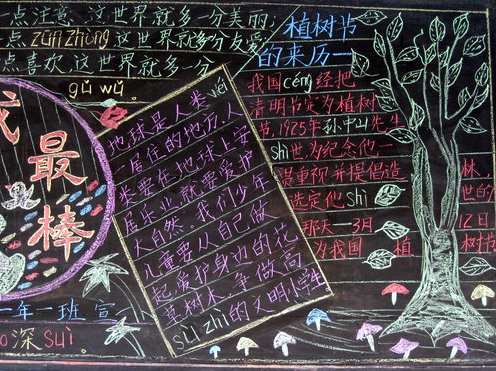 一点注意,这世界就多一分美丽,
一点zūn zhòng这世界就多一分友爱
点喜欢,这世界就多一分
gǔ wǔ。
我
最
棒
一年一班 宣
深suì
地球是人类wéi
一居住的地方,人
类要在地球上安
居生业,就要爱护
大自然。我们少年
儿童要从自己做
起,爱护身边的花
草树木,争做高
sù zhì的文明小学生
植树节
的来历
我国céng经把
清明节定为植树
节,1925年孙中山先生
shì世,为纪念他一
重视并提倡造林,
选定他shì世的
那天一3月12日
为我国 植树节